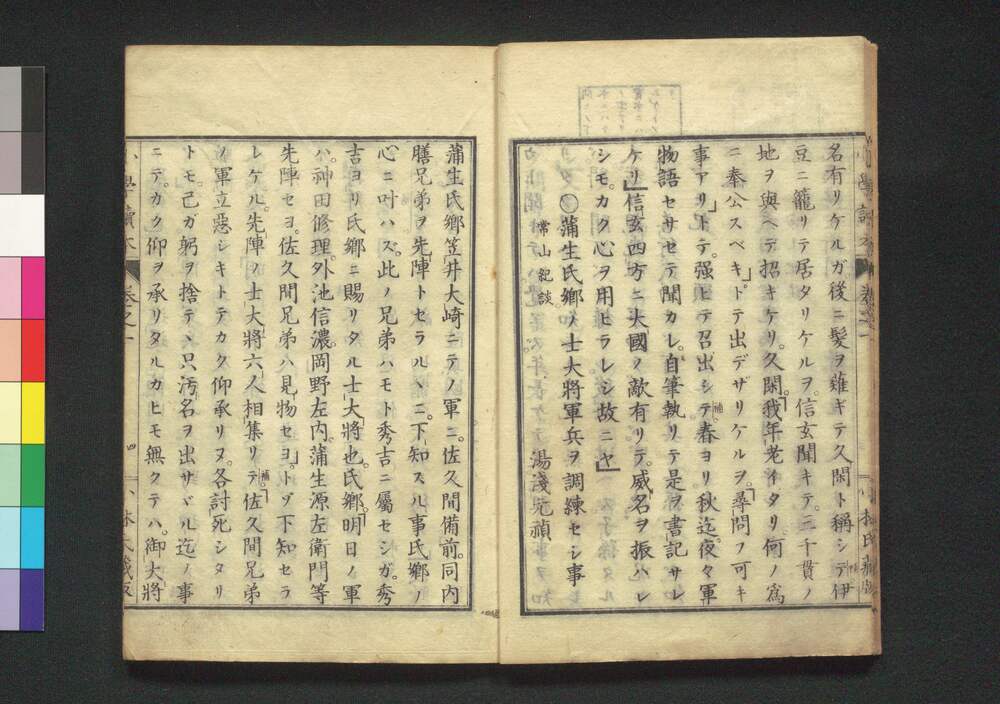 名有リケルガ後ニ髮ヲ薙ギテ久閑ト稱シテ伊
豆ニ籠リテ居タリケルヲ。信玄聞キテ。三千貫ノ
地ヲ與ヘテ招キケリ。久閑。「我年老イタリ。何ノ爲
ニ奉公スベキ。」トテ出デザリケルヲ。「尋問フ可キ
事アリ。」トテ。强ヒテ召出シテ。補春ヨリ秋迄。夜々軍
物語セサセテ聞カレ。自筆執リテ是ヲ書記サレ
ケリ」信玄四方ニ大國ノ敵有リテ。威名ヲ振ハレ
シモ。カク心ヲ用ヒラレシ故ニヤ」
○蒲生氏鄉ノ士大將軍兵ヲ調練セシ事
常山紀談 湯淺元禎
蒲生氏鄉笠井大崎ニテノ軍ニ。佐久間備前。同内
膳兄弟ヲ先陣トセラルヽニ。下知スル事氏鄉ノ
心ニ叶ハズ。此ノ兄弟ハモト秀吉ニ屬セシガ。秀
吉ヨリ氏鄉ニ賜リタル士大將也。氏鄉。「明日ノ軍
ハ。神田修理。外池信濃。岡野左内。蒲生源左衛門等
先陣セヨ。佐久間兄弟ハ見物セヨ。」トゾ下知セラ
レケル。先陣ノ士大將六人相集リテ。補「佐久間兄弟
ノ軍立惡シキトテカク仰承リヌ。各討死シタリ
トモ。己ガ躬ヲ捨テヽ只汚名ヲ出サヾル迄ノ事
ニテ。カク仰ヲ承リタルカヒモ無クテハ。御大將
小學讀本 卷之一 四 小林氏藏版